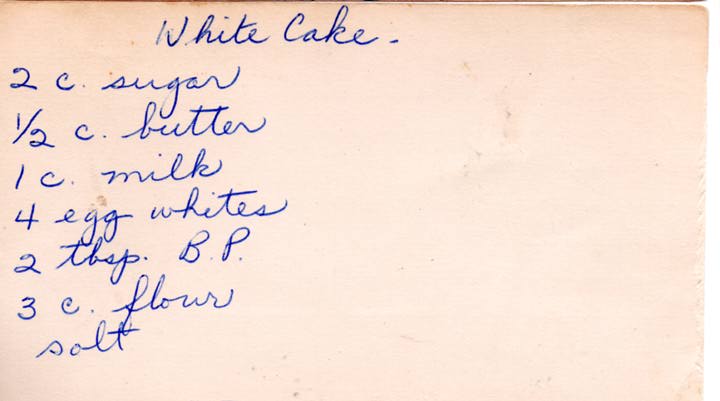 White Cake -
2 c. sugar
1/2 c. butter
1 c. milk
4 egg whites
2 tbsp. B.P.
3 c. flour
salt